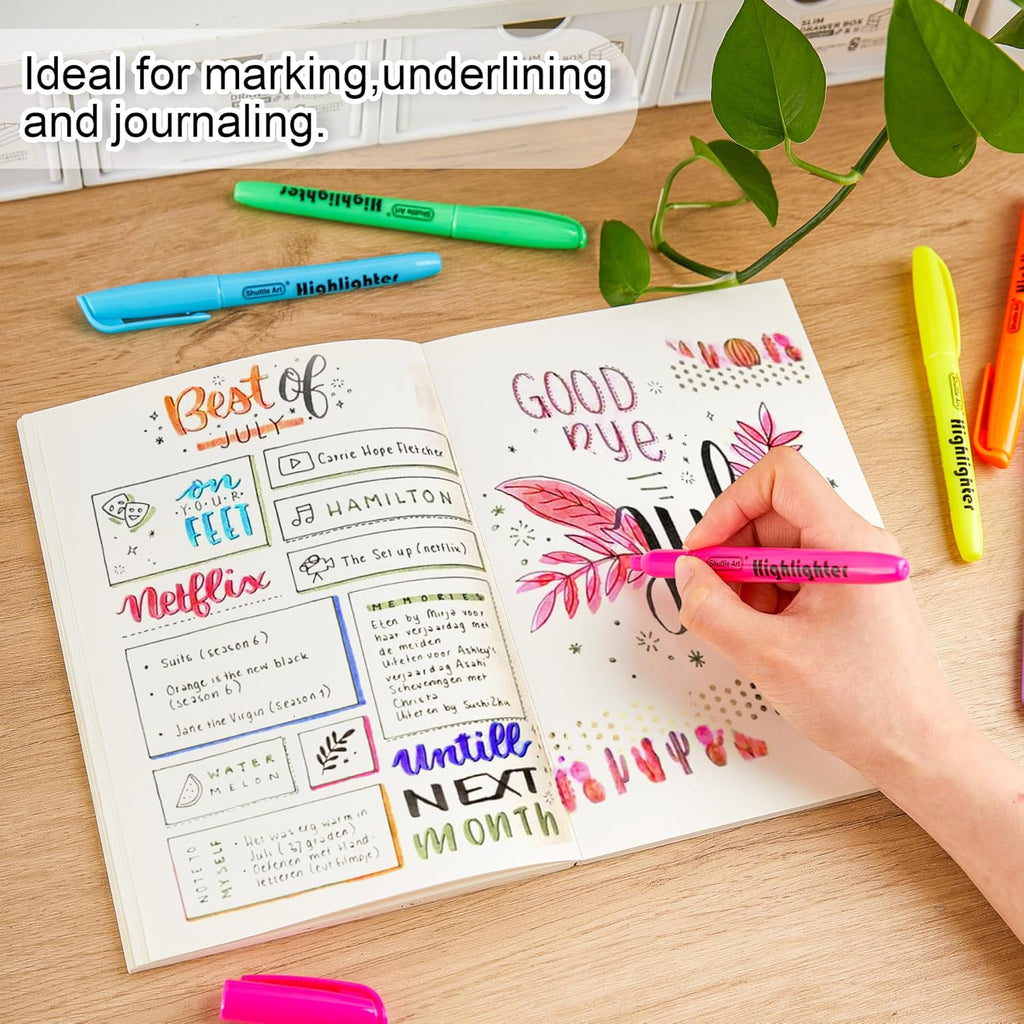 Ideal for marking,underlining
and journaling.
SLIM
DRAWER BOX
S
Highlighter Shuttle Art
Shuttle Art Highlighter
Shuttle Art Highlighter
Best of
JULY
on
YOUR
FEET
Carrie Hope Fletcher
HAMILTON
The Set up (netflix)
Netflix
• Suits (season 6)
• Orange is the new black
(season 6)
• Jane the Virgin (season 1)
MEMORIES
Eten by Mirja voor
haar verjaardag met
de meiden
Uiteten voor Ashley's
verjaardag Asahi
Scheveningen met
Christa
Uiteten by SushiZhu
WATER
MELON
NOTE TO
MYSELF
• Het was erg warm in
Juli (37 graden)
• Oefenen met Hand-
letteren (evt filmpje)
Untill
NEXT
MONTH
GOOD
bye
Shuttle Art Highlighter